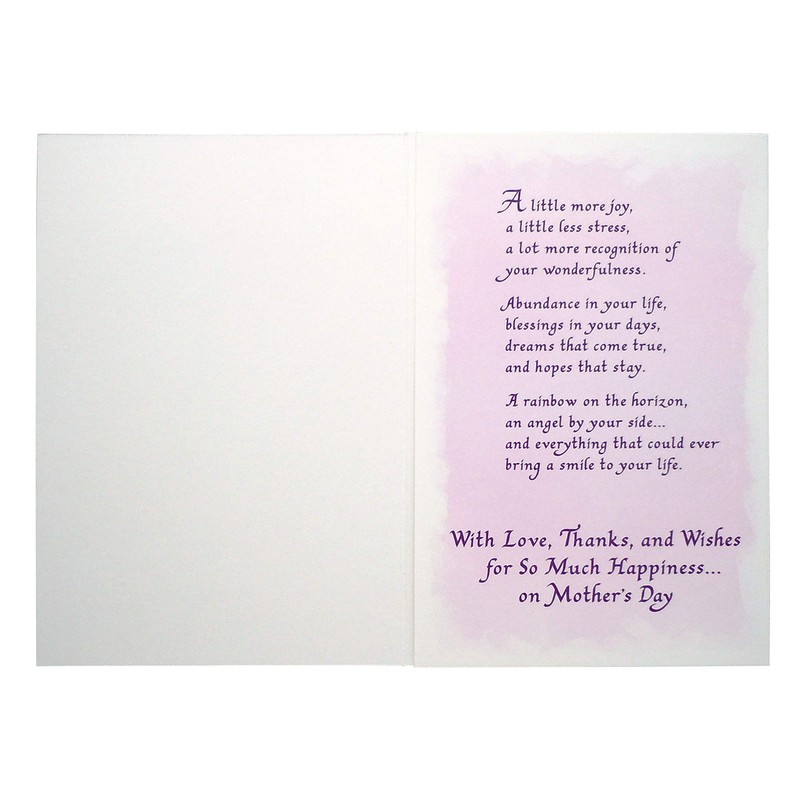 A little more joy,
a little less stress,
a lot more recognition of
your wonderfulness.
Abundance in your life,
blessings in your days,
dreams that come true,
and hopes that stay.
A rainbow on the horizon,
an angel by your side...
and everything that could ever
bring a smile to your life.
With Love, Thanks, and Wishes
for So Much Happiness...
on Mother's Day